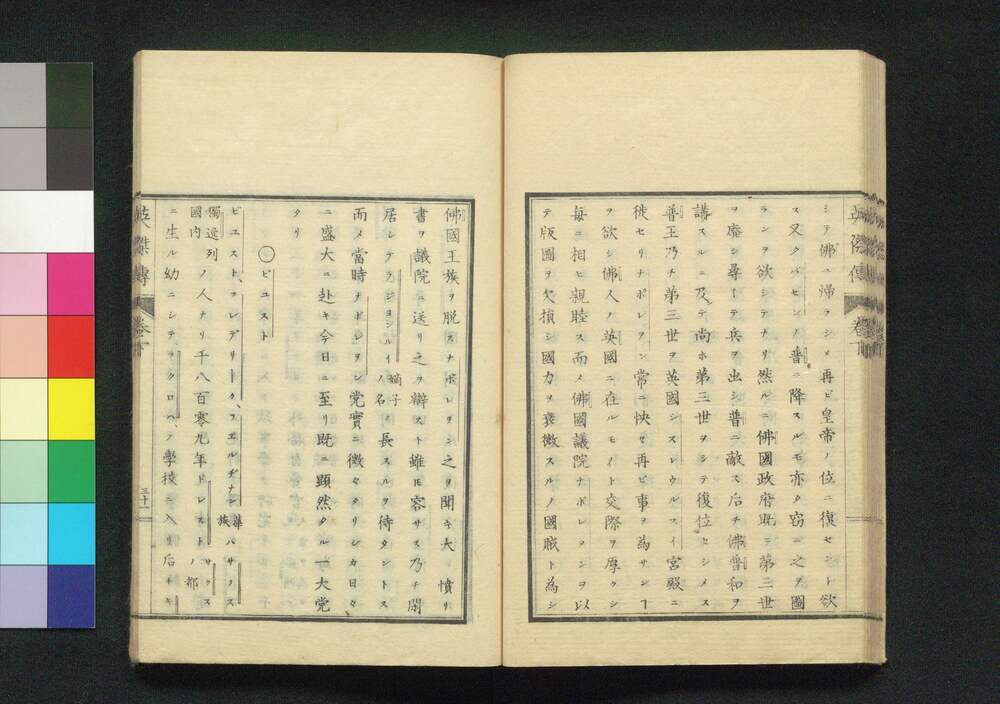 シテ佛ニ歸ラシメ再ビ皇帝ノ位ニ復セント欲
ス又タバセンノ普ニ降スルモ亦タ窃ニ之ヲ圖
ランヲ欲シテナリ然ルニ佛國政府既ニ第三世
ヲ廢シ尋ーテ兵ヲ出シ普ニ敵ス后チ佛普和ヲ
講スルニ及テ尚ホ第三世ヲシテ復位セシメス
普王乃チ第三世ヲ英國シスレウルスイ宮殿ニ
徙セリナポレヲン常ニ怏せ再ビ事ヲ為サンヿ
ヲ欲シ佛人ノ英國ニ在ルモノト交際ヲ厚クシ
毎ニ相ヒ親睦ス而メ佛國議院ナポレヲンヲ以
テ版圖ヲ欠損シ國力ヲ衰微スルノ國賊ト為シ
佛國王族ヲ脱スナポレヲン之ヲ聞キ大ニ憤リ
書ヲ議院ニ送リ之ヲ辯スト雖ㇳモ容サス乃チ閑
居シテヲジヨンルイ嫡子ノ名ノ長スルヲ待タントス
而メ當時ナポレヲン党實ニ微々タリシカ日々
ニ盛大ニ赴キ今日ニ至リ既ニ顕然タル一大党
タリ
〇ビユスト
ビユスト、フレデリーク、フエルヂナン華族ハサクノス
獨逸列國内ノ人ナリ千八百零九年ドレストロクスノ都
ニ生ル幼ニシテラクロヘノ學校ニ入リ后チキ
英傑傳
卷下
三十一